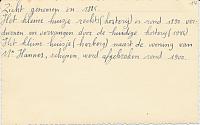 Zicht genomen in 1885.
Het kleine huisje rechts (hostorij) is rond 1890 ver-
dwenen en vervangen door de huidige hostorij (1898)
Het klein huisje (hostorij) naast de woning van
Hannes, schepen, werd afgebroken rond 1900.